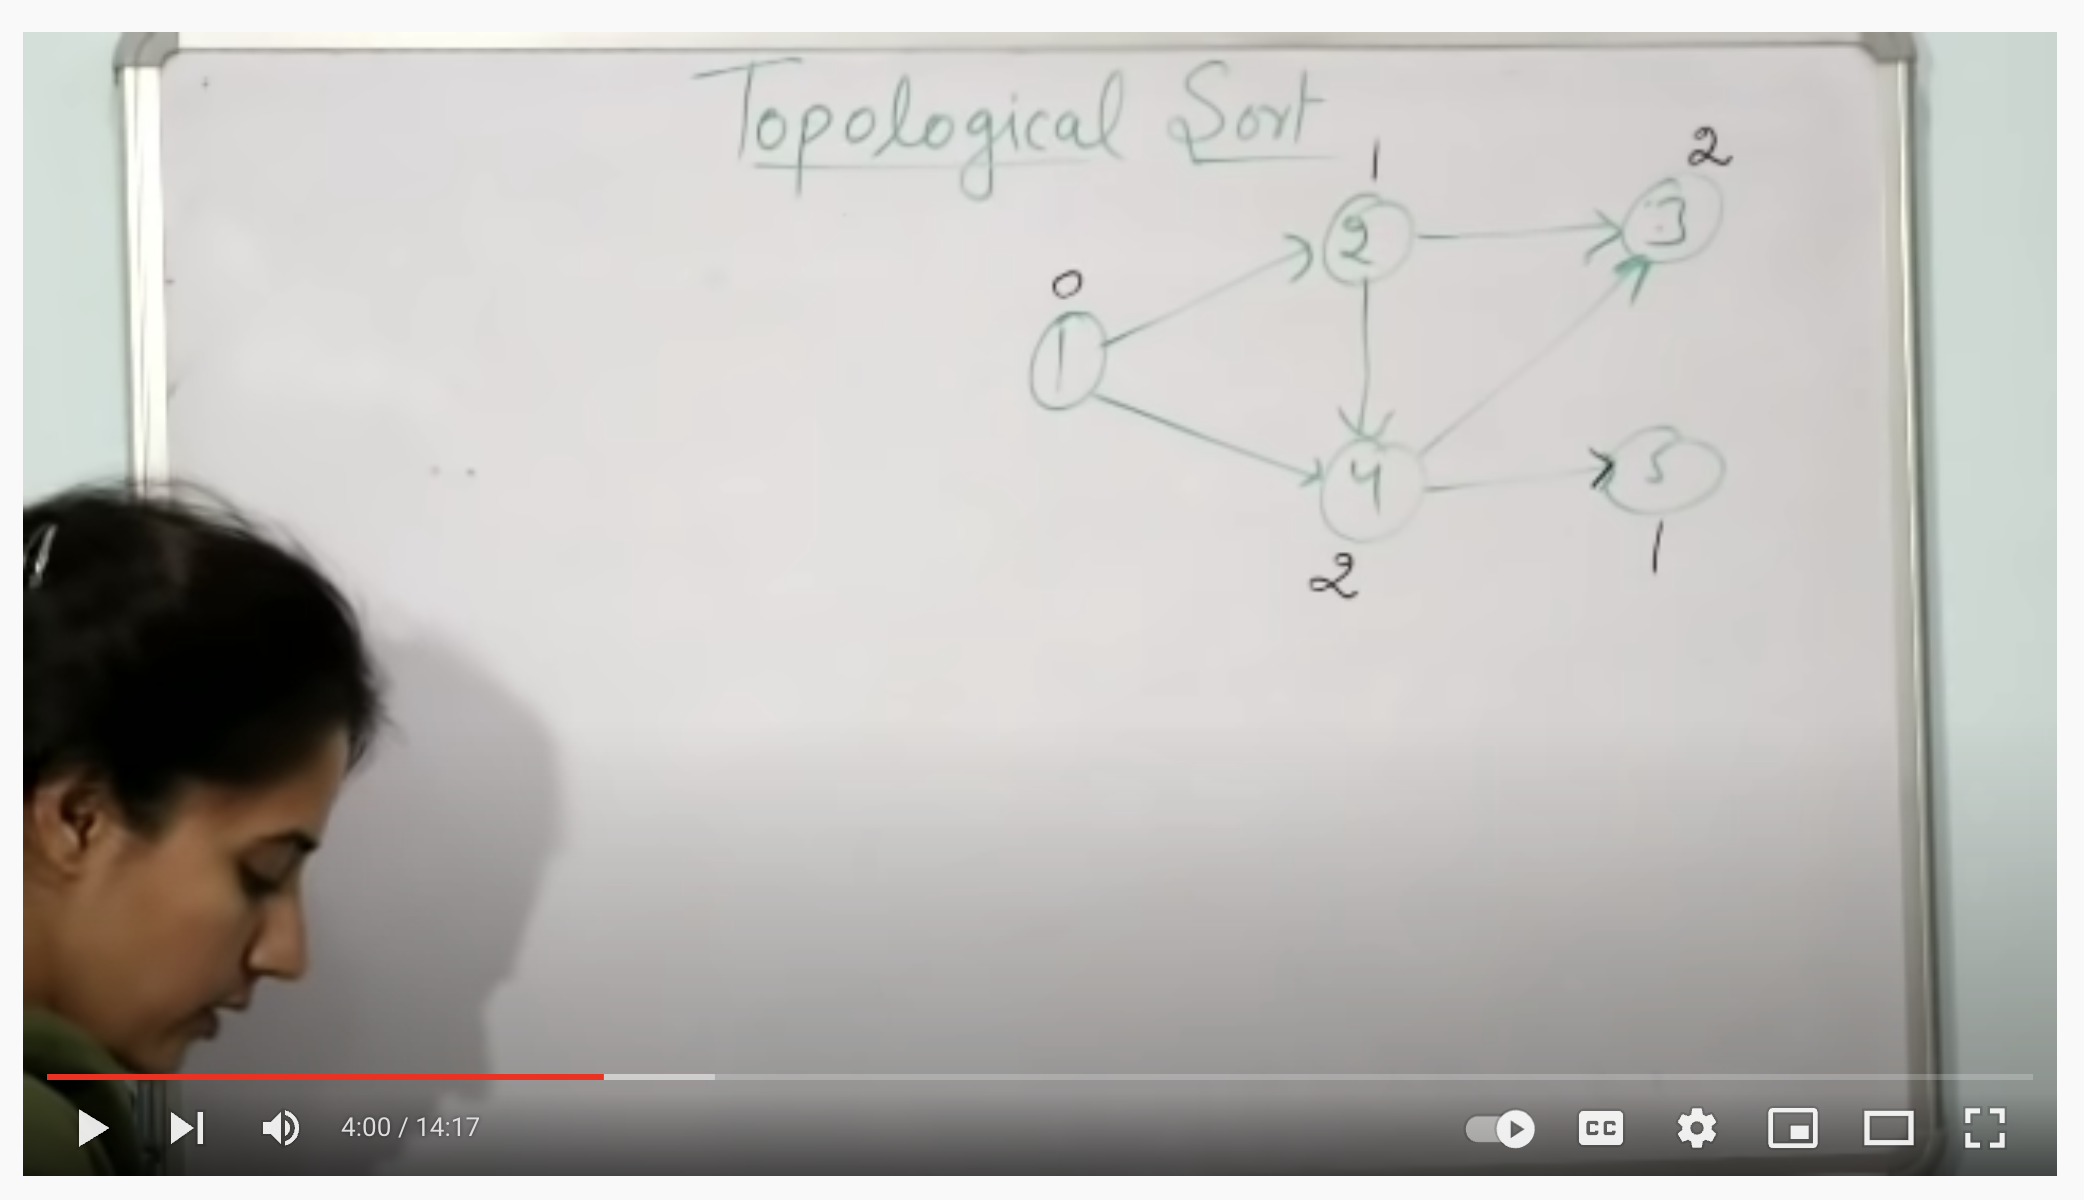 Topological Sort
1
2
2
3
0
1
4
5
2
1
4:00 / 14:17
CC